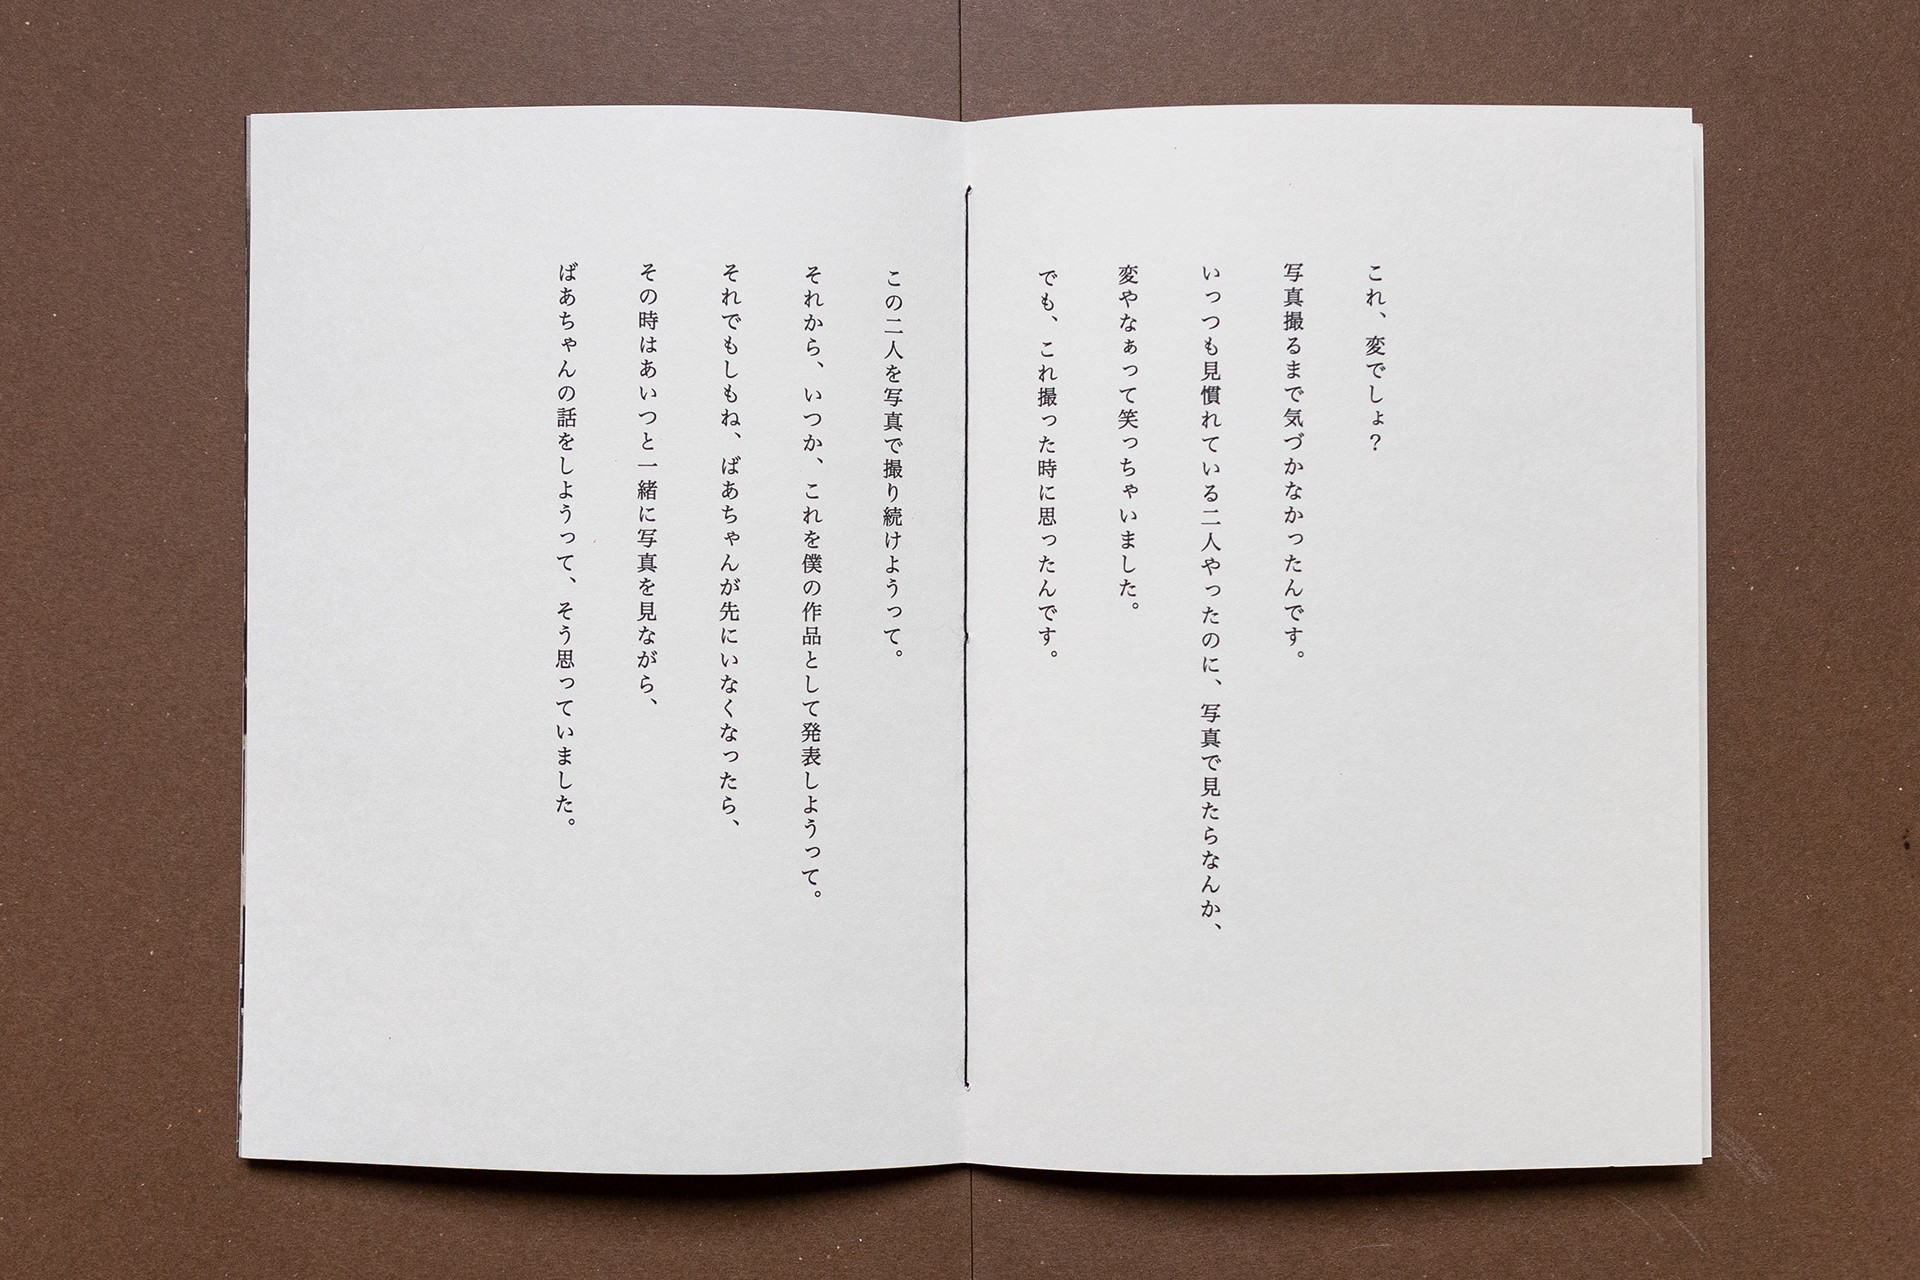 これ、変でしょ？
写真撮るまで気づかなかったんです。
いっつも見慣れている二人やったのに、写真で見たらなんか、
変やなぁって笑っちゃいました。
でも、これ撮った時に思ったんです。
この二人を写真で撮り続けようって。
それから、いつか、これを僕の作品として発表しようって。
それでもしもね、ばあちゃんが先にいなくなったら、
その時はあいつと一緒に写真を見ながら、
ばあちゃんの話をしようって、そう思っていました。